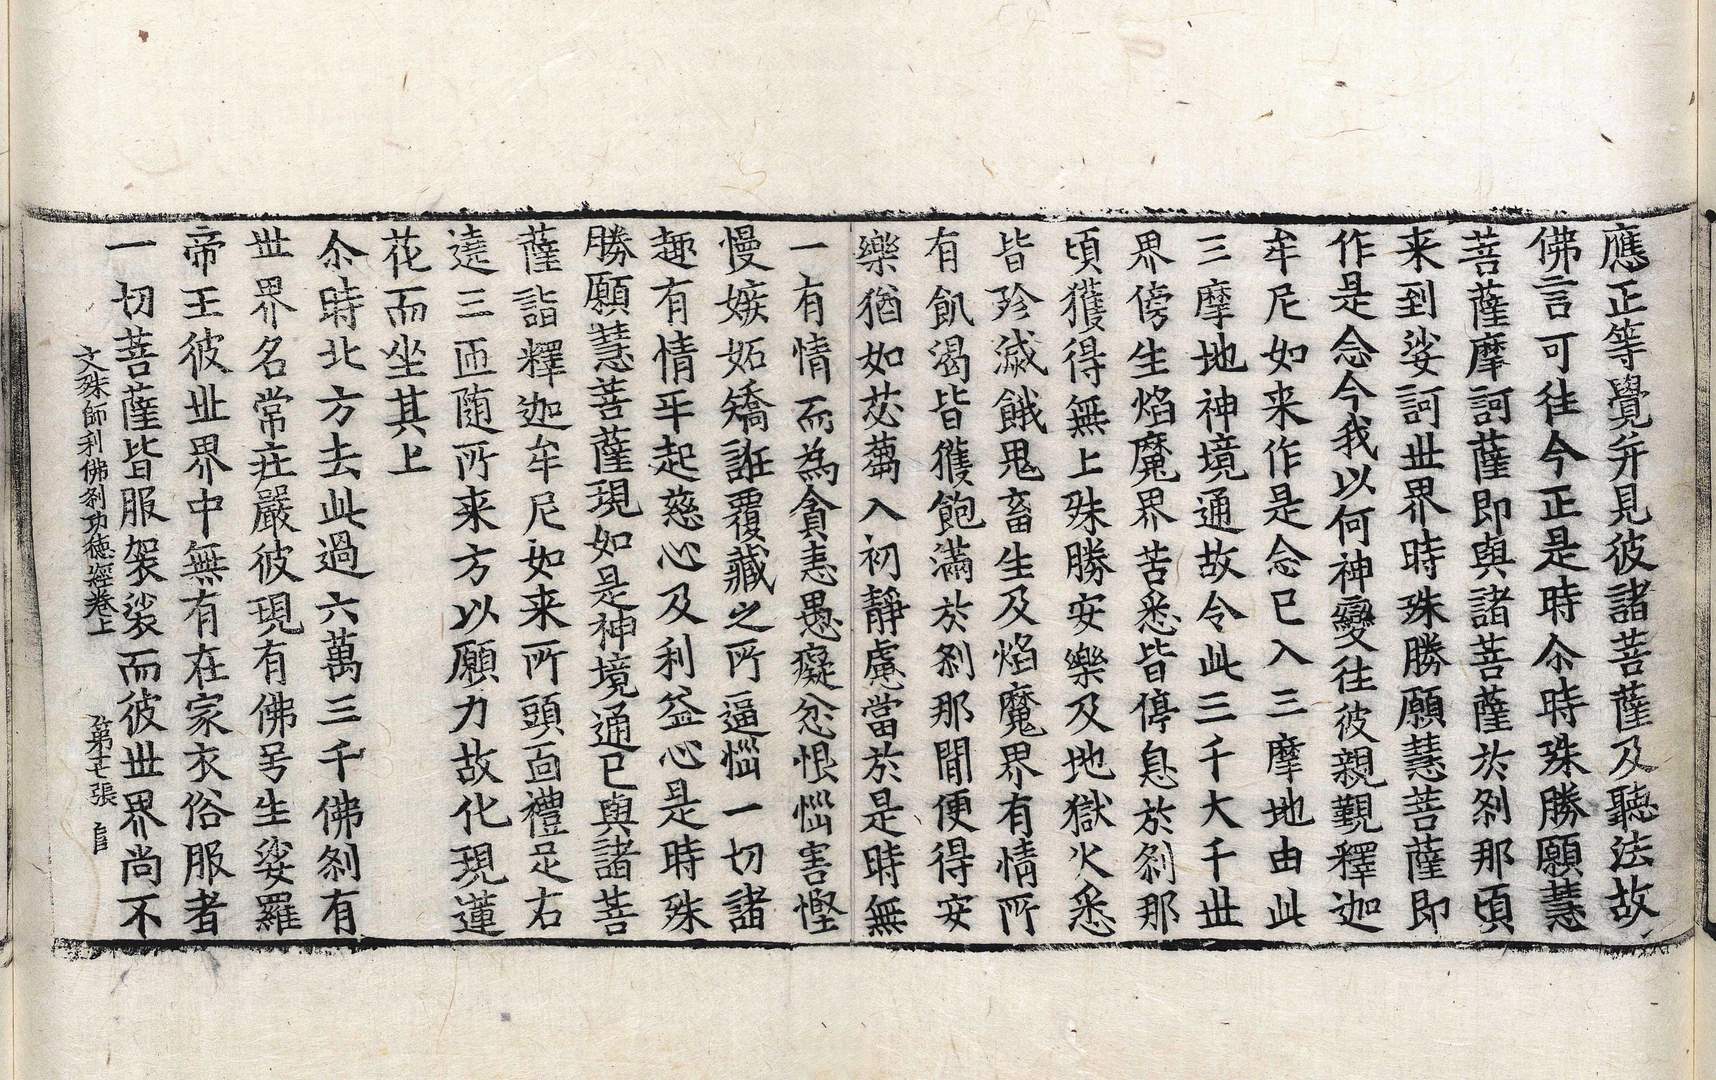 應正等覺并見彼諸菩薩及聽法故
佛言可往今正是時尒時殊勝願慧
菩薩摩訶薩即與諸菩薩於刹那頃
来到娑訶世界時殊勝願慧菩薩即
作是念今我以何神變往彼親覲釋迦
牟尼如来作是念已入三摩地由此
三摩地神境通故令此三千大千世
界傍生焰魔界苦悉皆停息於刹那
頃獲得無上殊勝安樂及地獄火悉
皆殄滅餓鬼畜生及焰魔界有情所
有飢渴皆獲飽滿於刹那間便得安
樂猶如苾蒭入初靜慮當於是時無
一有情而為貪恚愚癡忿恨惱害慳
慢嫉妬矯誑覆藏之所逼惱一切諸
趣有情平起慈心及利益心是時殊
勝願慧菩薩現如是神境通已與諸菩
薩詣釋迦牟尼如来所頭面禮足右
遶三帀随所来方以願力故化現蓮
花而坐其上
尒時北方去此過六萬三千佛刹有
世界名常莊嚴彼現有佛号生娑羅
帝王彼世界中無有在家衣俗服者
一切菩薩皆服袈裟而彼世界尚不
文殊師利佛刹功德經卷上 第七張